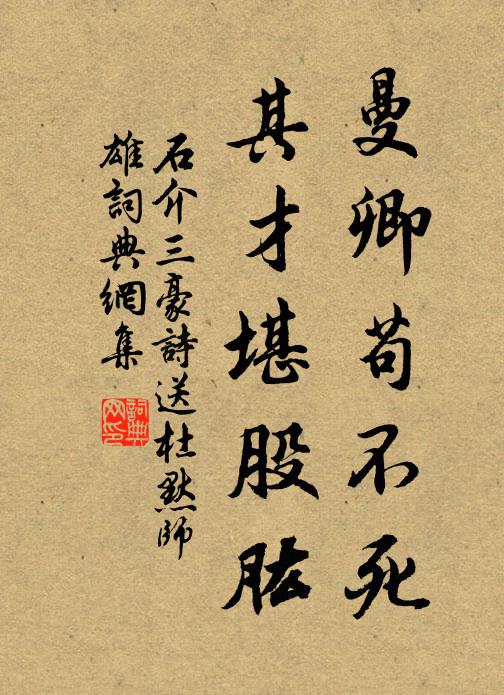 曼卿苟不死
其才堪股肱
石介三豪詩送杜默師
雄詞典網集
詞典
网印